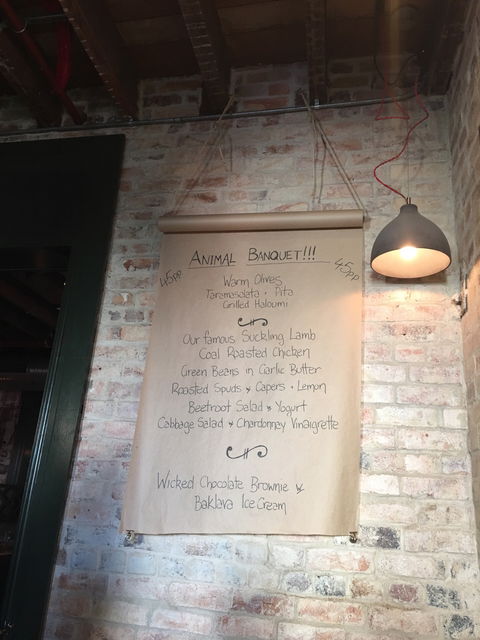 ANIMAL BANQUET!!!
45pp
45pp
Warm Olives
Taramasalata + Pita
Grilled Haloumi
Our famous Suckling Lamb
Coal Roasted Chicken
Green Beans in Garlic Butter
Roasted Spuds w Capers + Lemon
Beetroot Salad w Yogurt
Cabbage Salad w Chardonnay Vinaigrette
Wicked Chocolate Brownie w
Baklava Ice Cream